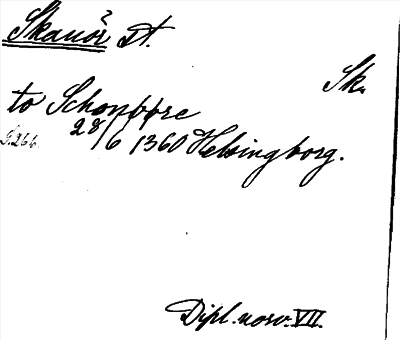 Skanör St.
Sk.
to Schonøøre
28/6 1360 Helsingborg.
S.266.
Dipl. norv. VII.